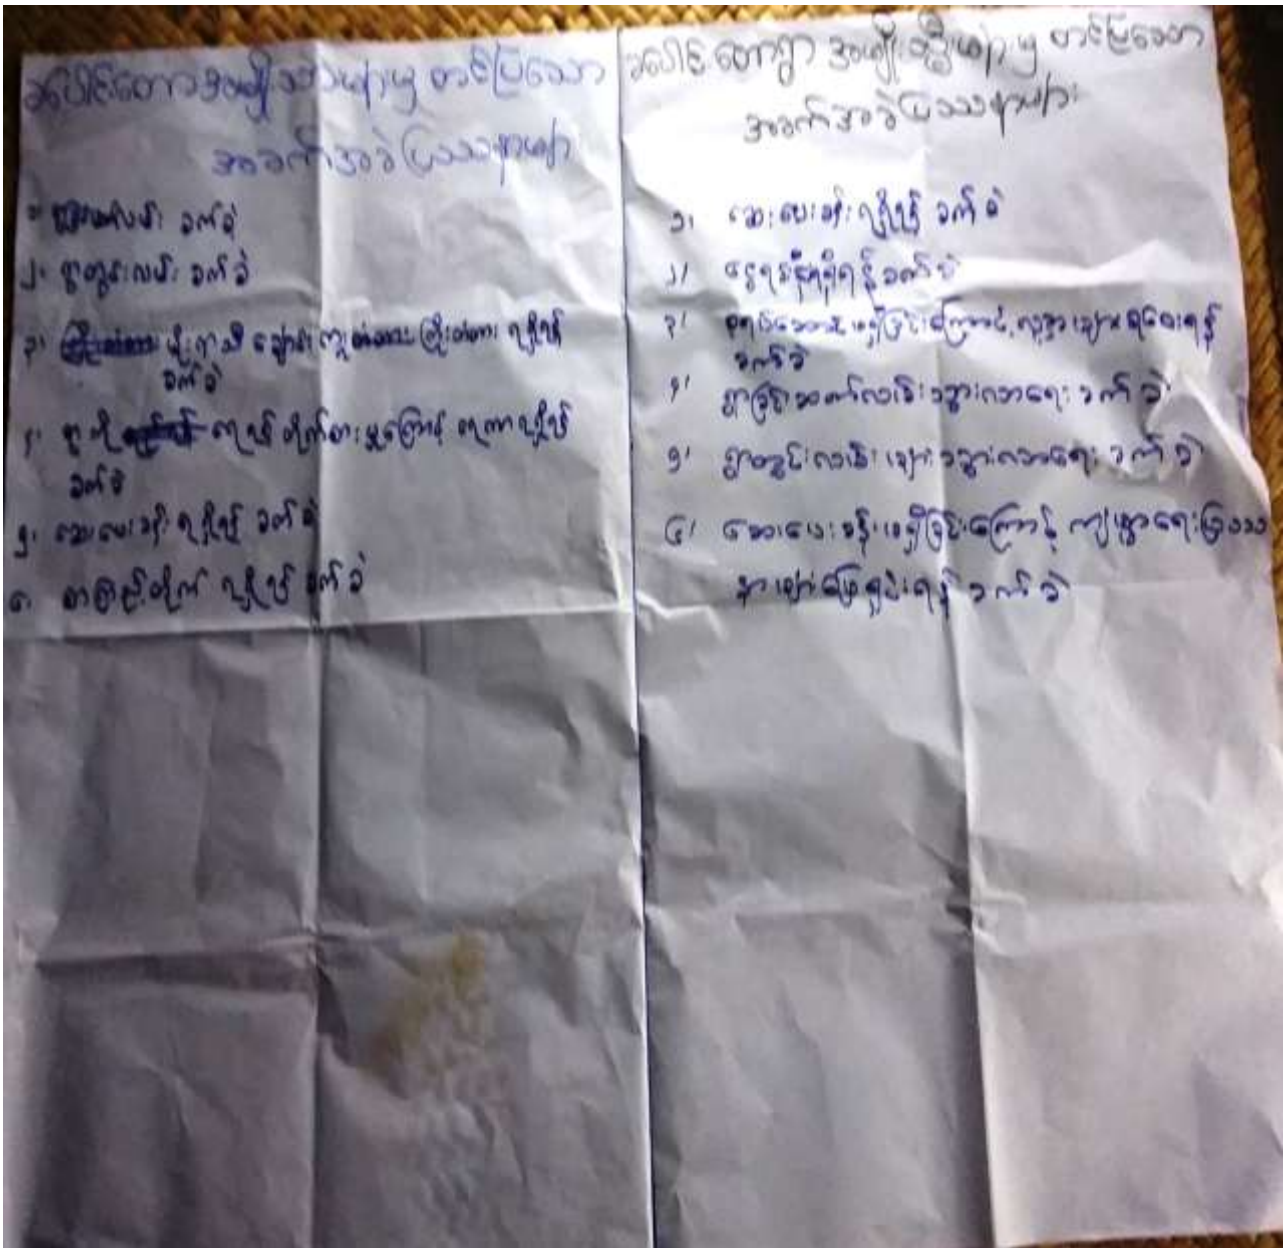 ခပေါင်တောအမျိုးသားများမှ တင်ပြသော
အခက်အခဲပြဿနာများ
လမ်း ခက်ခဲ
၂၊ ရွာတွင်းလမ်း ခက်ခဲ
၃၊ မိုးရာသီ ချောင်းကူး ကြိုးတံတား ရရှိရန်
ခက်ခဲ
၄၊ ရွာကို ရေတိုက်စားမှုကြောင့် ရေကာ ရရှိရန်
ခက်ခဲ
၅၊ ဆေးပေးခန်း ရရှိရန် ခက်ခဲ
၆၊ စာကြည့်တိုက် ရရှိရန် ခက်ခဲ
ခပေါင်တောရွာ အမျိုးသ္မီးများမှ တင်ပြသော
အခက်အခဲပြဿနာများ
၁၊ ဆေးပေးခန်း ရရှိရန် ခက်ခဲ
၂၊ ရရှိရန် ခက်ခဲ
၃၊ မရှိခြင်းကြောင့် လူနာများ ရန်
ခက်ခဲ
၄၊ ရွာခြင်းဆက်လမ်း သွားလာရေး ခက်ခဲ
၅၊ ရွာတွင်းလမ်းများ သွားလာရေး ခက်ခဲ
၆၊ ဆေးပေးခန်းမရှိခြင်းကြောင့် ကျမ္မာရေးပြဿ
နာများဖြေရှင်းရန် ခက်ခဲ